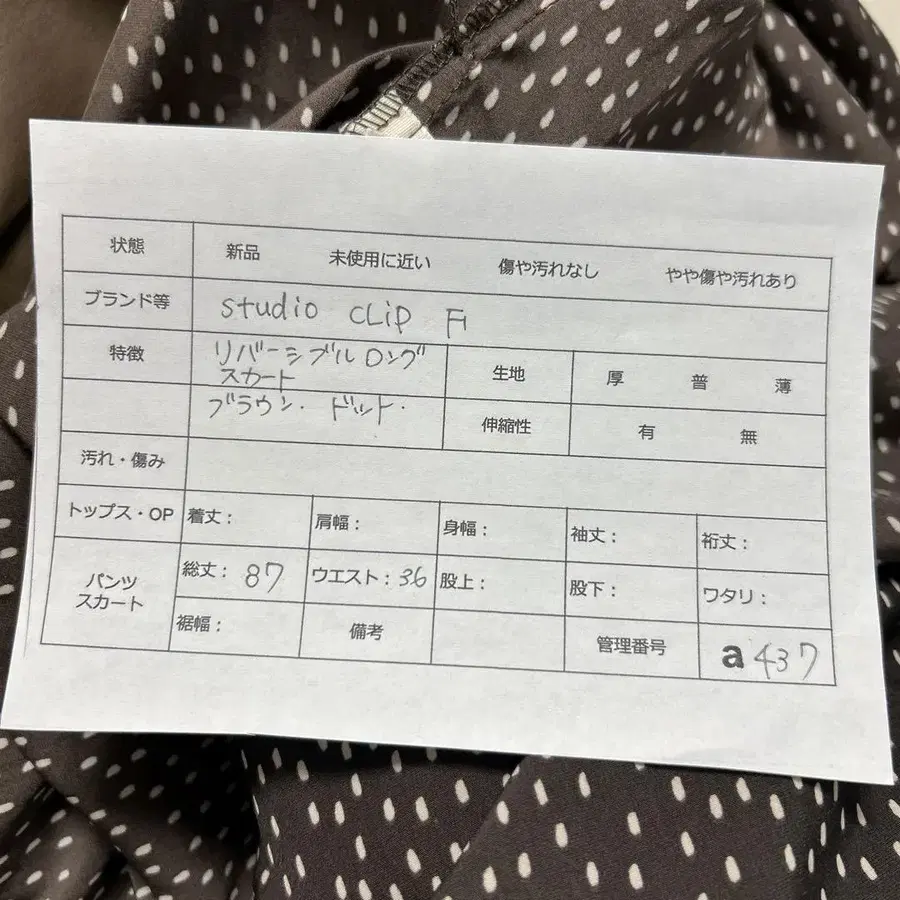 状態 新品 未使用に近い 傷や汚れなし やや傷や汚れあり
ブランド等 studio CLiP F
特徴 リバーシブル ロング
スカート
生地 厚 普 薄
ブラウン・ ドット・
伸縮性 有 無
汚れ・傷み
トップス・OP 着丈: 肩幅: 身幅: 袖丈: 裄丈:
パンツ
スカート
総丈: 87 ウエスト: 36 股上: 股下: ワタリ:
裾幅: 備考 管理番号 a 437